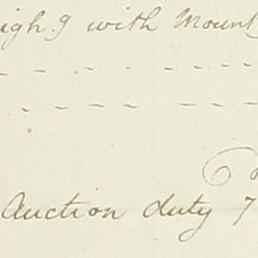 igh.g with Mount
Auction duty 7